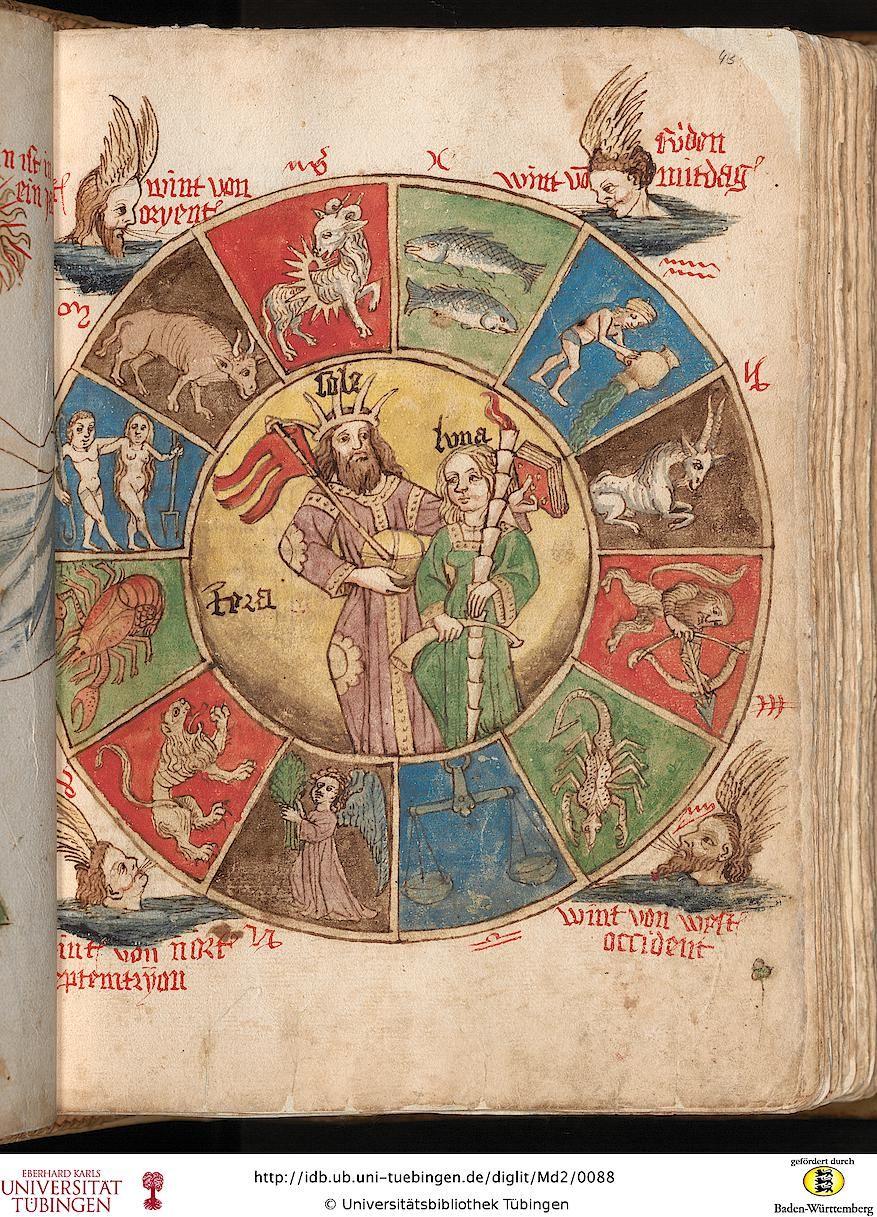 43
wint von
oryent
wint vo
süden
mitdag
solz
luna
tera
wint von west
occident
int von nort
eptemtryon
EBERHARD KARLS
UNIVERSITÄT
TÜBINGEN
http://idb.ub.uni-tuebingen.de/diglit/Md2/0088
© Universitätsbibliothek Tübingen
gefördert durch
Baden-Württemberg